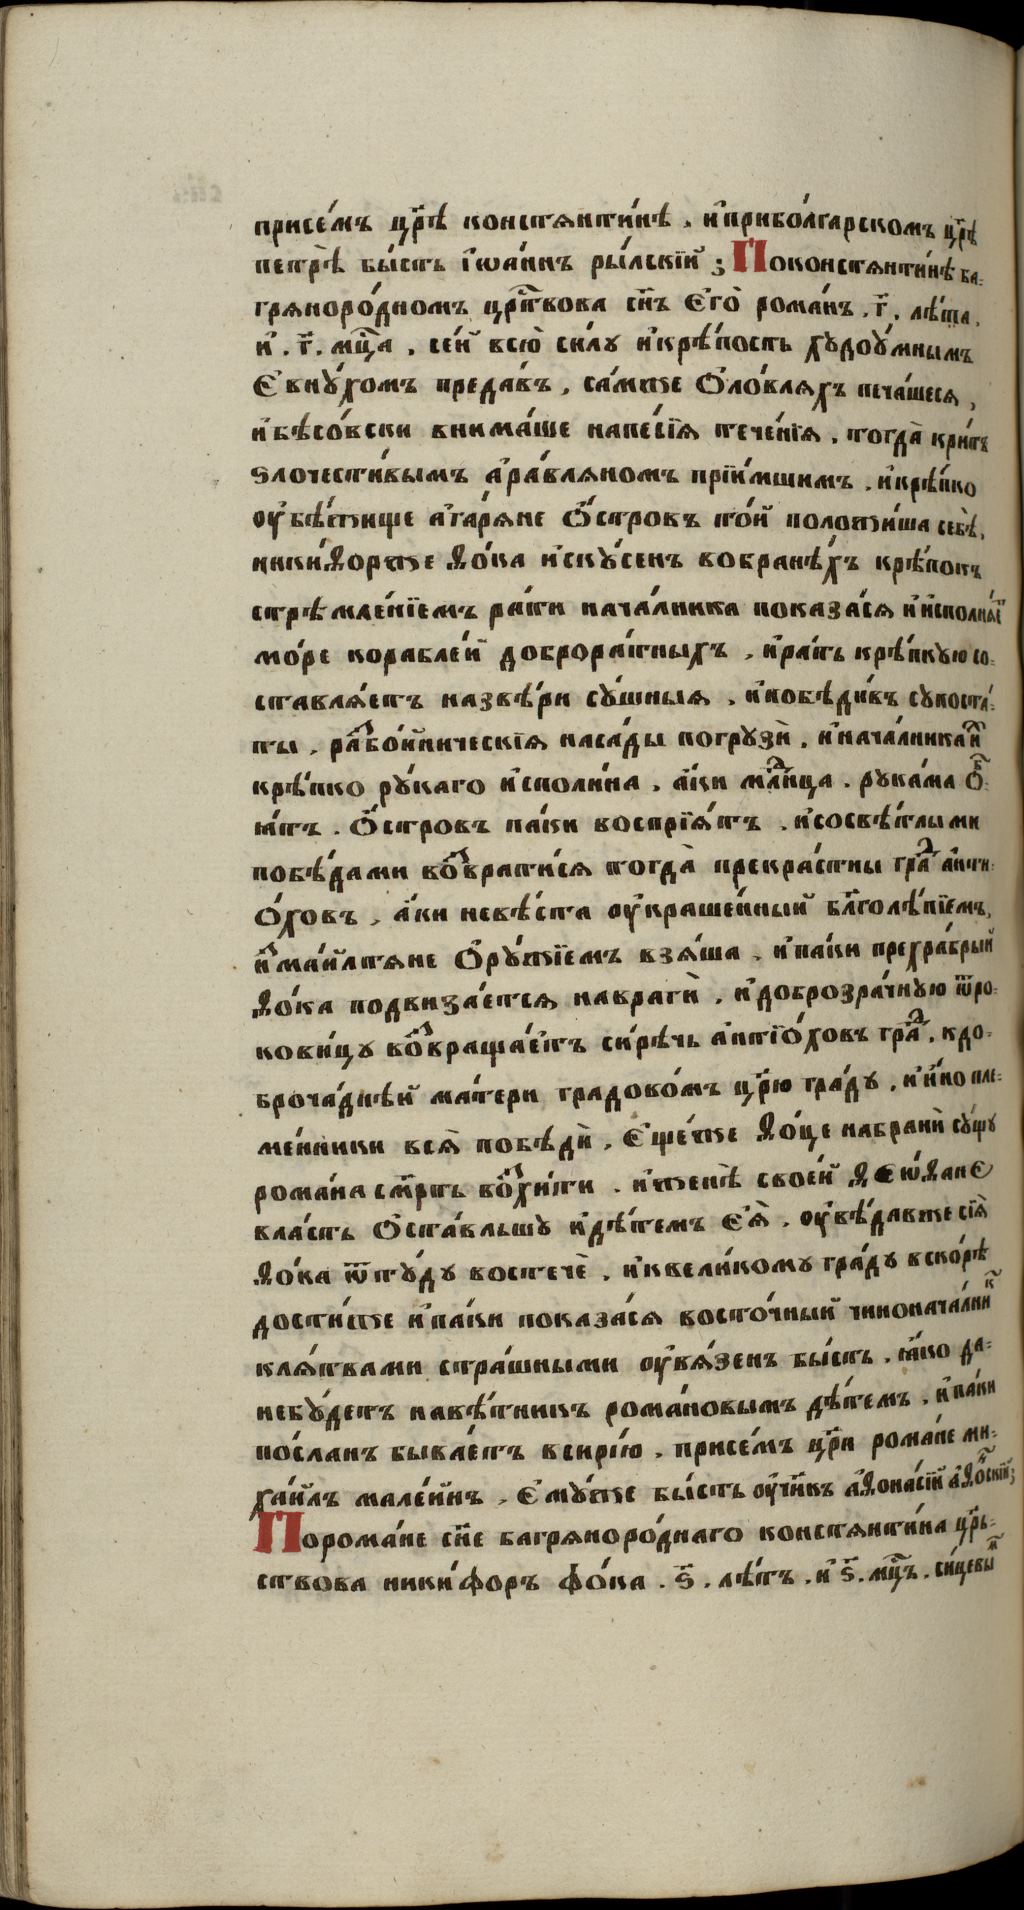 присе́мъ цр҃ѣ констянти́нѣ . и҆прибо́лгарскомъ цр҃ѣ
петрѣ̀ бы́сть і҆ѡа́ннъ ры́лскїй ; Поконстянти́нѣ ба-
гряноро́дномъ црⷭ҇твова сн҃ъ є҆го̀ рома́нъ . г҃ . лѣ́та .
и҆ . г҃ . мцⷭ҇а . се́й всю̀ си́лу и҆крѣ́пость худоу́мнымъ
є҆вну́хомъ преда́въ , са́мже ѻ҆ло́вляхъ печа́шеся ,
и҆бѣсо́вски внима́ше напе́сїя тече́нїя . тогда̀ кри́тъ
ѕлочести́вымъ а҆ра́вляномъ прїи́мшимъ . и҆крѣ́пко
оу҆бѣ́жище а҆га́ряне ѻ҆́стровъ то́й положи́ша себѣ̀ .
ники́ѳорже ѳо́ка и҆ску́сенъ вобране́хъ крѣ́покъ
стрѣмле́нїемъ ра́ти нача́лника показа́ся и҆и҆сполня́єⷮ
мо́ре корабле́й доброра́тныхъ . и҆ра́ть крѣ́пкую со-
ставля́етъ назвѣ́ри су́щныя . и҆побѣди́въ супоста́-
ты . раⷥбо́йническїя наса́ды погрузѝ . и҆нача́лника и҆ⷯ
крѣ́пко ру́каго и҆споли́на . а҆́ки млⷣнца . рука́ма ѻ҆б̾-
ꙗ҆́тъ . ѻ҆́стровъ па́ки воспрїя́тъ . и҆сосвѣ́тлыми
побѣ́дами воⷥврати́ся тогда̀ прекра́сны граⷣ а҆нти-
ѻ҆́ховъ , а҆́ки невѣ́ста оу҆краше́нный бл҃голѣ́пїемъ ,
и҆ⷥма́илтяне ѻ҆ру́жїемъ взя́ша . и҆па́ки прехра́брый
ѳо́ка подвиза́ется навраги̂ . и҆доброзра́чную ѿро-
кови́цу воⷥвраща́етъ си́рѣчь а҆нтїѻ́ховъ граⷣ , к до-
броча́днѣй ма́тери градово́мъ цр҃ю гра́ду , и҆и҆нопле-
ме́нники вся̀ побѣдѝ . є҆ще́же ѳо́це набрани̂ су́щу
рома́на см҃рть воⷥхи́ти . и҆женѣ̀ свое́й ѳеѡ҆ѳане
вла́сть ѻ҆ста́вльшу и҆дѣ́темъ є҆я̀ . оу҆вѣ́давже сїя̀
ѳо́ка ѿту́ду востечѐ , и҆квели́кому гра́ду вско́рѣ
дости́же и҆па́ки показа́ся восто́чный чинонача́лниⷦ
кля́твами стра́шными оу҆вя́зенъ бы́сть . ꙗ҆́ко да-
небу́детъ навѣ́тникъ рома́новымъ дѣ́темъ , и҆па́ки
по́сланъ быва́етъ всирі́ю . присе́мъ цр҃и рома́не ми-
хаи́лъ мале́инъ , є҆му́же бы́сть оу҆чн҃къ а҆ѳона́сїй а҆ѳо́нⷭ҇кїй ;
Порома́не сн҃е багряноро́днаго констянти́на цр҃ь-
ствова ники́форъ фо́ка . ѕ҃ . лѣ́тъ . и҆ ѕ҃ . мцⷭ҇ъ . си́цевыⷨ